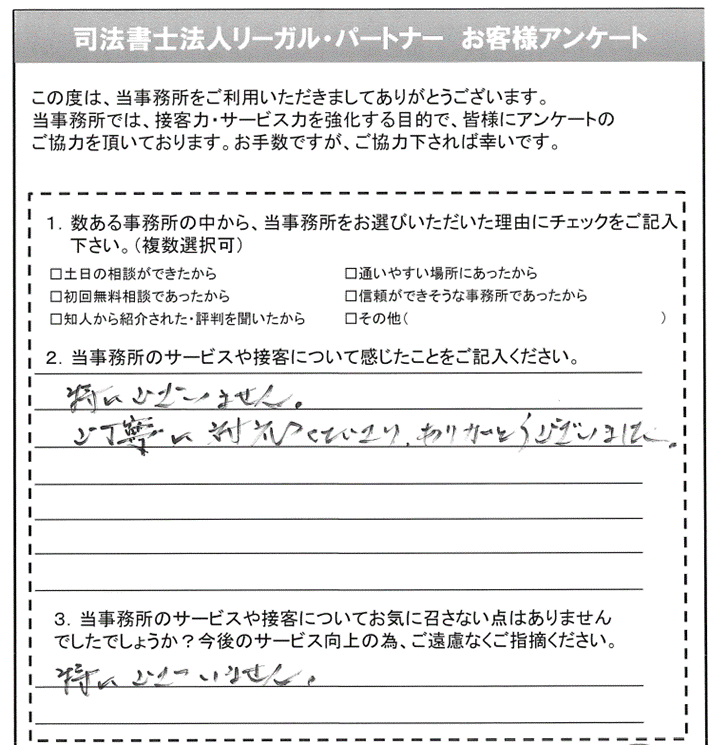 司法書士法人リーガル・パートナー お客様アンケート
この度は、当事務所をご利用いただきましてありがとうございます。
当事務所では、接客力・サービス力を強化する目的で、皆様にアンケートの
ご協力を頂いております。お手数ですが、ご協力下されば幸いです。
1. 数ある事務所の中から、当事務所をお選びいただいた理由にチェックをご記入
下さい。(複数選択可)
□土日の相談ができたから □通いやすい場所にあったから
□初回無料相談であったから □信頼ができそうな事務所であったから
□知人から紹介された・評判を聞いたから □その他( )
2. 当事務所のサービスや接客について感じたことをご記入ください。
特にございません。
ご丁寧に対応くださり、ありがとうございました。
3. 当事務所のサービスや接客についてお気に召さない点はありません
でしたでしょうか？今後のサービス向上の為、ご遠慮なくご指摘ください。
特にございません。